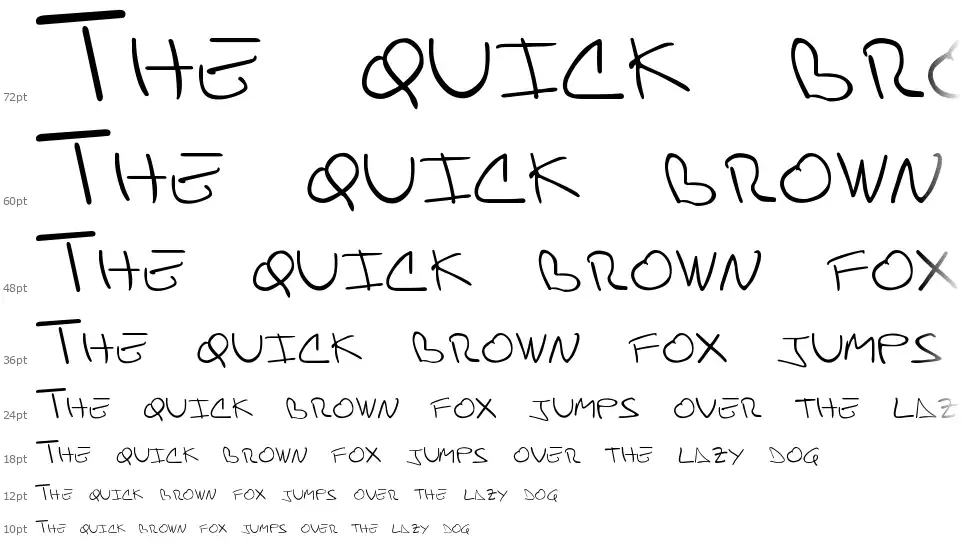 72pt THE QUICK BRO
60pt THE QUICK BROWN
48pt THE QUICK BROWN FOX
36pt THE QUICK BROWN FOX JUMPS
24pt THE QUICK BROWN FOX JUMPS OVER THE LAZ
18pt THE QUICK BROWN FOX JUMPS OVER THE LAZY DOG
12pt THE QUICK BROWN FOX JUMPS OVER THE LAZY DOG
10pt THE QUICK BROWN FOX JUMPS OVER THE LAZY DOG